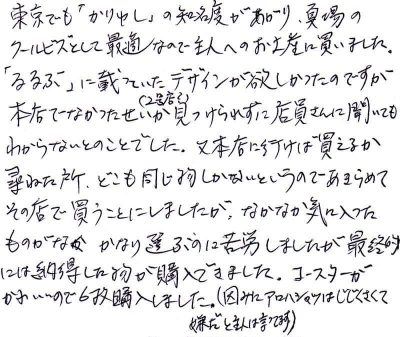 東京でも「かりゆし」の知名度があがり、夏場の
クールビズとして最適なので主人へのお土産に買いました。
「るるぶ」に載っていたデザインが欲しかったのですが
本店でなかったせいか見つけられずに店員さんに聞いても
(2号店?)
わからないとのことでした。又本店に行けば買えるか
尋ねた所、どこも同じ物しかないというのであきらめて
その店で買うことにしましたが、なかなか気に入った
ものがなく かなり選ぶのに苦労しましたが 最終的
には納得した物が購入できました。コースターが
かわいいので6枚購入しました。(因みにアロハシャツはじじくさくて
嫌だと主人は言ってます)